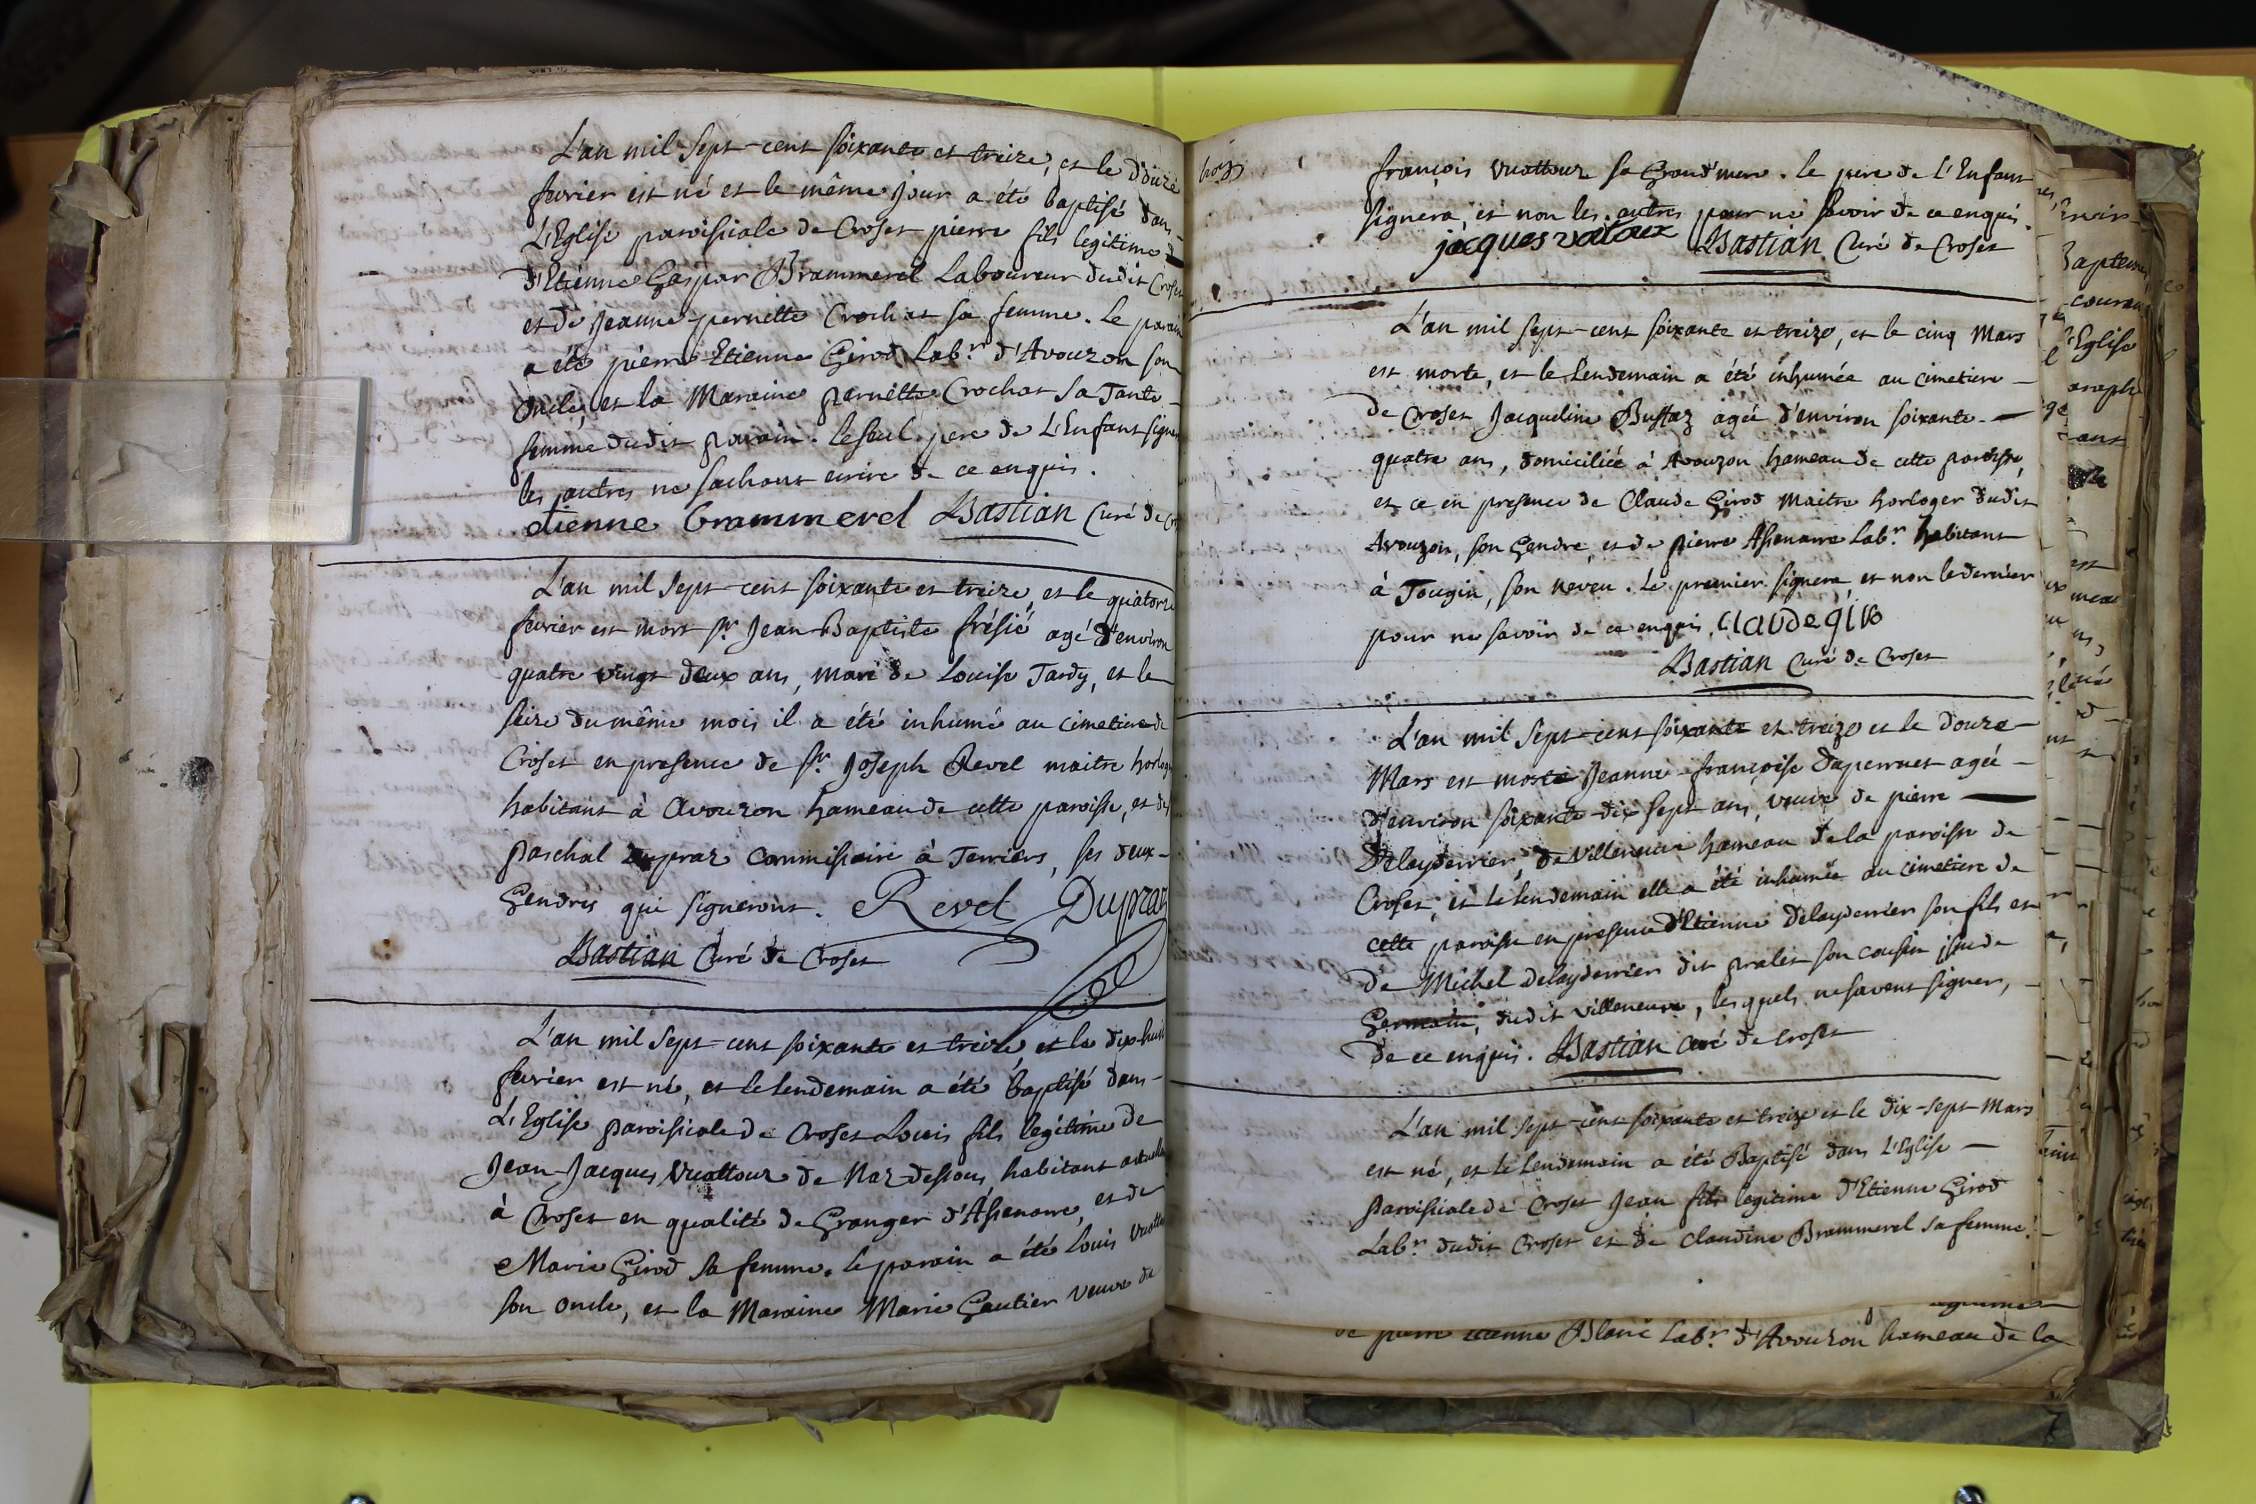 L'an mil sept-cent soixante et treize, et le douze
fevrier est né et le même jour a été baptisé dans
L'Eglise paroissiale de Croset pierre fils legitime
d'Etienne Gaspar Brammerel Laboureur dudit Croset
et de Jeanne-pernette Crochat sa femme. Le parain
a été pierre-Etienne Girod Lab.r d'Avouzon son
oncle, et la Maraine pernette Crochat sa Tante
femme dudit parain. Le seul pere de L'Enfant signera
les autres ne sachant ecrire de ce enquis.
etienne brammerel Bastian Curé de
L'an mil sept-cent soixante et treize, et le quatorze
fevrier est mort Sr. Jean-Baptiste frésié agé d'environ
quatre vingt deux ans, mari de Louise Tardy, et le
seize du même mois il a été inhumé au cimetiere de
Croset en presence de Sr. Joseph Revel maitre horloger
habitant à Avouzon hameau de cette paroisse, et de
paschal Dupraz Commissaire à Terriers, ses deux
Gendres qui signeront. Revel Dupraz
Bastian Curé de Croset
L'an mil sept-cent soixante et treize, et le dix-huit
fevrier est né, et le lendemain a été baptisé dans
L'Eglise paroissiale de Croset Louis fils legitime de
Jean-Jacques Vuattoux de Naz-dessous, habitant
à Croset en qualité de Granger d'Assenaire, et de
Marie Girod sa femme. Le parain a été Louis
son oncle, et la Maraine Marie Gautier veuve de
françois Vuattoux sa Grand'mere. Le pere de L'Enfant
signera, et non les autres pour ne savoir de ce enquis.
jacques vataux Bastian Curé de Croset
L'an mil sept-cent soixante et treize, et le cinq Mars
est morte, et le lendemain a été inhumée au cimetiere
de Croset Jacqueline Buffaz agée d'environ soixante
quatre ans, domiciliée à Avouzon hameau de cette paroisse,
et ce en presence de Claude Girod Maitre horloger dudit
Avouzon, son Gendre, et de pierre Assenaire Lab.r habitant
à Tougin, son neveu. Le premier signera, et non le dernier
pour ne savoir de ce enquis. Claude
Bastian Curé de Croset
L'an mil sept-cent soixante et treize et le douze
Mars est morte Jeanne-françoise Daperruet agée
d'environ soixante-dix sept ans, veuve de pierre
Delayderrier, de Villeneuve hameau de la paroisse de
Croset, et le lendemain elle a été inhumée au cimetiere de
cette paroisse en presence d'Etienne Delayderrier son fils et
de Michel Delayderrier dit pralet son cousin issu de
Germain, dudit villeneuve, lesquels ne savent signer,
de ce enquis. Bastian Curé de Croset
L'an mil sept-cent soixante et treize et le dix-sept Mars
est né, et le lendemain a été Baptisé dans L'Eglise
paroissiale de Croset Jean fils legitime d'Etienne Girod
Lab.r dudit Croset et de Claudine Brammerel sa femme.
de pierre Etienne Blanc Lab.r d'Avouzon hameau de la